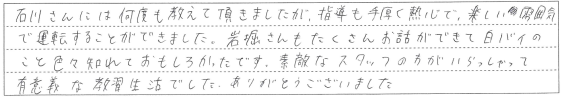 石川さんには何度も教えて頂きましたが、指導も手厚く熱心で、楽しい雰囲気
で運転することができました。岩堀さんもたくさんお話ができて白バイの
こと色々知れておもしろかったです。素敵なスタッフの方がいらっしゃって
有意義な教習生活でした。ありがとうございました